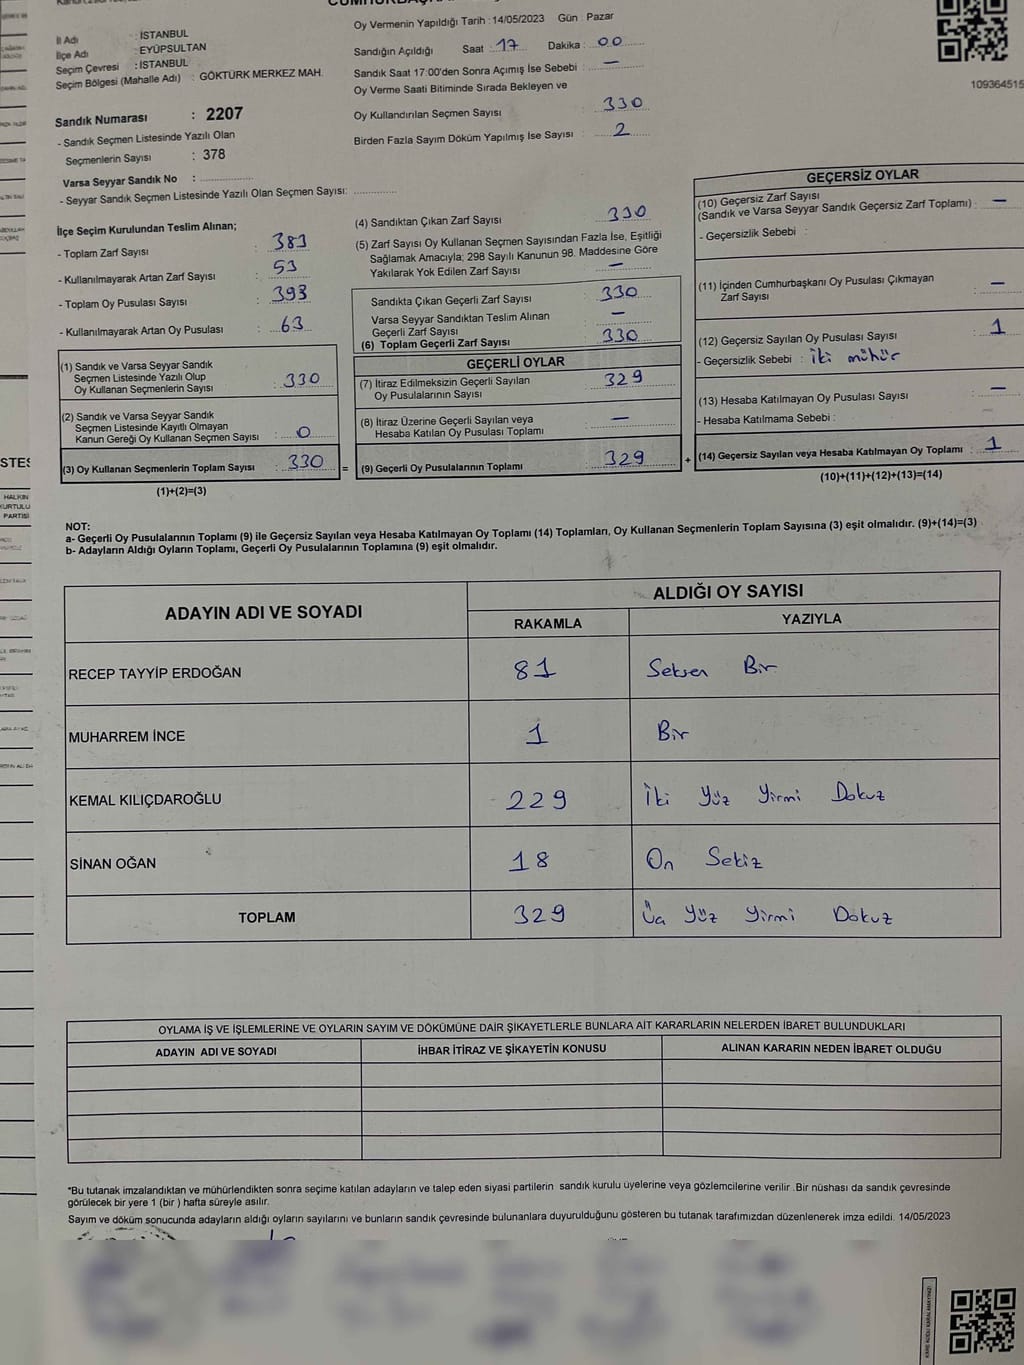 Oy Vermenin Yapıldığı Tarih : 14/05/2023 Gün : Pazar
İl Adı : İSTANBUL
İlçe Adı : EYÜPSULTAN
Seçim Çevresi : İSTANBUL
Seçim Bölgesi (Mahalle Adı) : GÖKTÜRK MERKEZ MAH.
Sandığın Açıldığı Saat : 17 Dakika : 00
Sandık Saat 17:00'den Sonra Açımış İse Sebebi : —
Oy Verme Saati Bitiminde Sırada Bekleyen ve
Oy Kullandırılan Seçmen Sayısı : 330
Birden Fazla Sayım Döküm Yapılmış İse Sayısı : 2
109364515
Sandık Numarası : 2207
- Sandık Seçmen Listesinde Yazılı Olan
Seçmenlerin Sayısı : 378
Varsa Seyyar Sandık No :
- Seyyar Sandık Seçmen Listesinde Yazılı Olan Seçmen Sayısı:
İlçe Seçim Kurulundan Teslim Alınan;
- Toplam Zarf Sayısı : 383
- Kullanılmayarak Artan Zarf Sayısı : 53
- Toplam Oy Pusulası Sayısı : 393
- Kullanılmayarak Artan Oy Pusulası : 63
(1) Sandık ve Varsa Seyyar Sandık
Seçmen Listesinde Yazılı Olup
Oy Kullanan Seçmenlerin Sayısı : 330
(2) Sandık ve Varsa Seyyar Sandık
Seçmen Listesinde Kayıtlı Olmayan
Kanun Gereği Oy Kullanan Seçmen Sayısı : 0
(3) Oy Kullanan Seçmenlerin Toplam Sayısı : 330 =
(1)+(2)=(3)
(4) Sandıktan Çıkan Zarf Sayısı : 330
(5) Zarf Sayısı Oy Kullanan Seçmen Sayısından Fazla İse, Eşitliği
Sağlamak Amacıyla; 298 Sayılı Kanunun 98. Maddesine Göre
Yakılarak Yok Edilen Zarf Sayısı : —
Sandıkta Çıkan Geçerli Zarf Sayısı : 330
Varsa Seyyar Sandıktan Teslim Alınan
Geçerli Zarf Sayısı : —
(6) Toplam Geçerli Zarf Sayısı : 330
GEÇERLİ OYLAR
(7) İtiraz Edilmeksizin Geçerli Sayılan
Oy Pusulalarının Sayısı : 329
(8) İtiraz Üzerine Geçerli Sayılan veya
Hesaba Katılan Oy Pusulası Toplamı : —
(9) Geçerli Oy Pusulalarının Toplamı : 329 +
GEÇERSİZ OYLAR
(10) Geçersiz Zarf Sayısı
(Sandık ve Varsa Seyyar Sandık Geçersiz Zarf Toplamı) : —
- Geçersizlik Sebebi :
(11) İçinden Cumhurbaşkanı Oy Pusulası Çıkmayan
Zarf Sayısı : —
(12) Geçersiz Sayılan Oy Pusulası Sayısı : 1
- Geçersizlik Sebebi : iki mühür
(13) Hesaba Katılmayan Oy Pusulası Sayısı : —
- Hesaba Katılmama Sebebi :
(14) Geçersiz Sayılan veya Hesaba Katılmayan Oy Toplamı : 1
(10)+(11)+(12)+(13)=(14)
NOT:
a- Geçerli Oy Pusulalarının Toplamı (9) ile Geçersiz Sayılan veya Hesaba Katılmayan Oy Toplamı (14) Toplamları, Oy Kullanan Seçmenlerin Toplam Sayısına (3) eşit olmalıdır. (9)+(14)=(3)
b- Adayların Aldığı Oyların Toplamı, Geçerli Oy Pusulalarının Toplamına (9) eşit olmalıdır.
ADAYIN ADI VE SOYADI ALDIĞI OY SAYISI
RAKAMLA YAZIYLA
RECEP TAYYİP ERDOĞAN 81 Seksen Bir
MUHARREM İNCE 1 Bir
KEMAL KILIÇDAROĞLU 229 İki Yüz Yirmi Dokuz
SİNAN OĞAN 18 On Sekiz
TOPLAM 329 Üç Yüz Yirmi Dokuz
OYLAMA İŞ VE İŞLEMLERİNE VE OYLARIN SAYIM VE DÖKÜMÜNE DAİR ŞİKAYETLERLE BUNLARA AİT KARARLARIN NELERDEN İBARET BULUNDUKLARI
ADAYIN ADI VE SOYADI İHBAR İTİRAZ VE ŞİKAYETİN KONUSU ALINAN KARARIN NEDEN İBARET OLDUĞU
*Bu tutanak imzalandıktan ve mühürlendikten sonra seçime katılan adayların ve talep eden siyasi partilerin sandık kurulu üyelerine veya gözlemcilerine verilir. Bir nüshası da sandık çevresinde
görülecek bir yere 1 (bir ) hafta süreyle asılır.
Sayım ve döküm sonucunda adayların aldığı oyların sayılarını ve bunların sandık çevresinde bulunanlara duyurulduğunu gösteren bu tutanak tarafımızdan düzenlenerek imza edildi. 14/05/2023
HALKIN
KURTULU
PARTİSİ